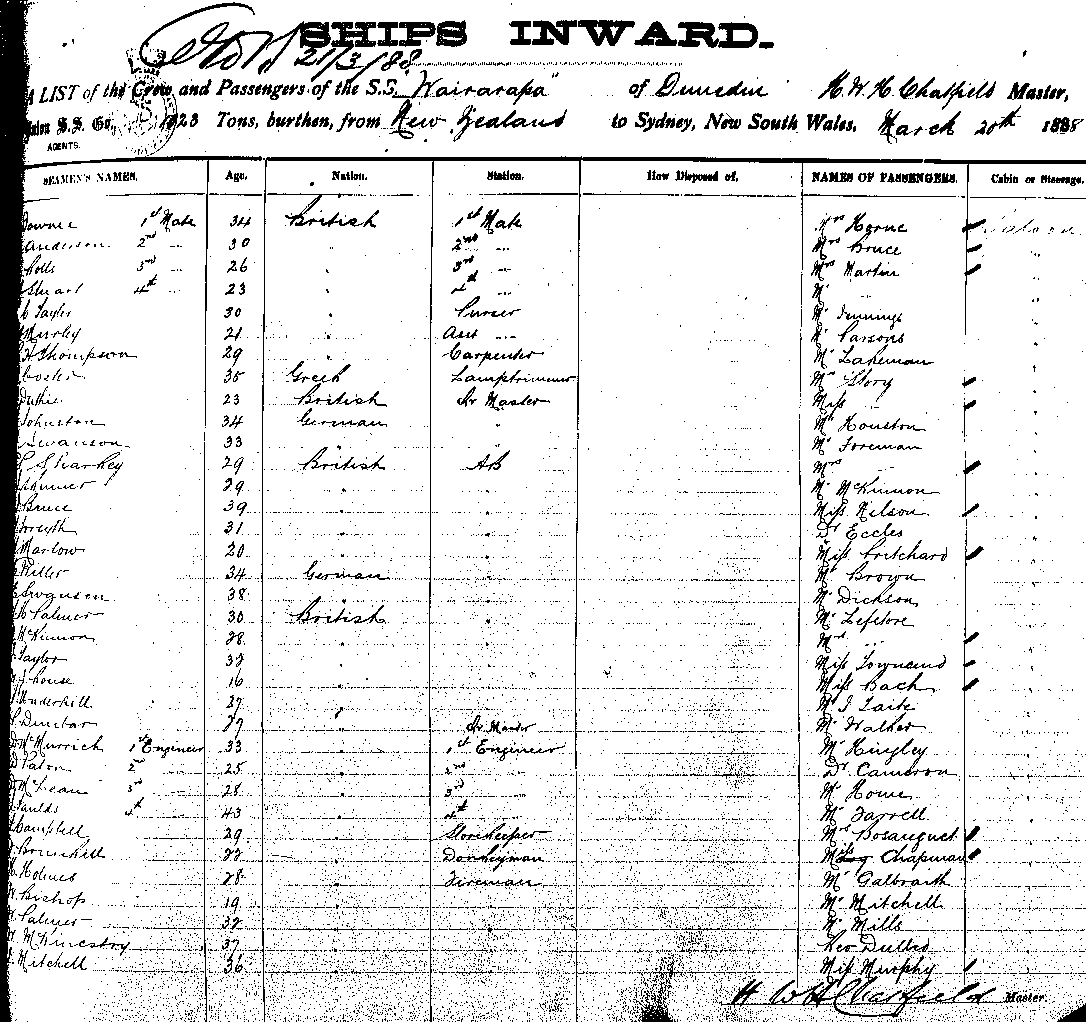 SHIPS INWARD.
21/3/88
A LIST of the Crew and Passengers of the S.S. "Wairarapa" of Dunedin H. W. H. Chatfield Master,
Union S. S. Co., 1023 Tons, burthen, from New Zealand to Sydney, New South Wales, March 20th 1888
AGENTS.
SEAMEN'S NAMES. Age. Nation. Station. How Disposed of. NAMES OF PASSENGERS. Cabin or Steerage.
1st Mate 34 British 1st Mate Mrs Horne Saloon
Anderson 2nd " 30 " 2nd " Mrs Bruce "
Potts 3rd " 26 " 3rd " Mrs Martin "
Stuart 4th " 23 " 4th " Mr " "
Taylor 30 " Purser Mr Jennings "
21 " Asst " Mr Parsons "
H Thompson 29 " Carpenter Mr Lakeman "
35 Greek Lamptrimmer Mr Story "
Duthie 23 British Qr Master Miss "
Johnston 34 German " Mr Houston "
Swanson 33 " " Mr Foreman "
Sharkey 29 British AB Mrs "
29 " " Mr McKinnon "
Bruce 39 " " Miss Nelson "
Forsyth 31 " " Dr Eccles "
Marlow 20 " " Miss Pritchard "
Miller 34 German " Mr Brown "
Ferguson 38 " " Mr Dickson "
Palmer 30 British " Mr Lefevre "
McKinnon 28 " " Mrs " "
Taylor 32 " " Miss Townend "
16 " " Miss Bach "
Underhill 27 " " Mr J Tait "
Dunbar 27 " Qr Master Mr Walker "
McMurrich 1st Engineer 33 " 1st Engineer Mr Hingley "
Paton 2nd " 25 " 2nd " Dr Cameron "
McLean 3rd " 28 " 3rd " Mr Home "
Faulds 4th 43 " 4th " Mr Farrell "
Campbell 29 " Storekeeper Mrs Bosanquet "
22 " Donkeyman Miss Chapman "
Holmes 28 " Fireman Mr Galbraith "
Bishop 19 " " Mr Mitchell "
Palmer 32 " " Mr Mills "
McKinestry 37 " " Rev "
Mitchell 36 " " Miss Murphy "
H W H Chatfield Master.